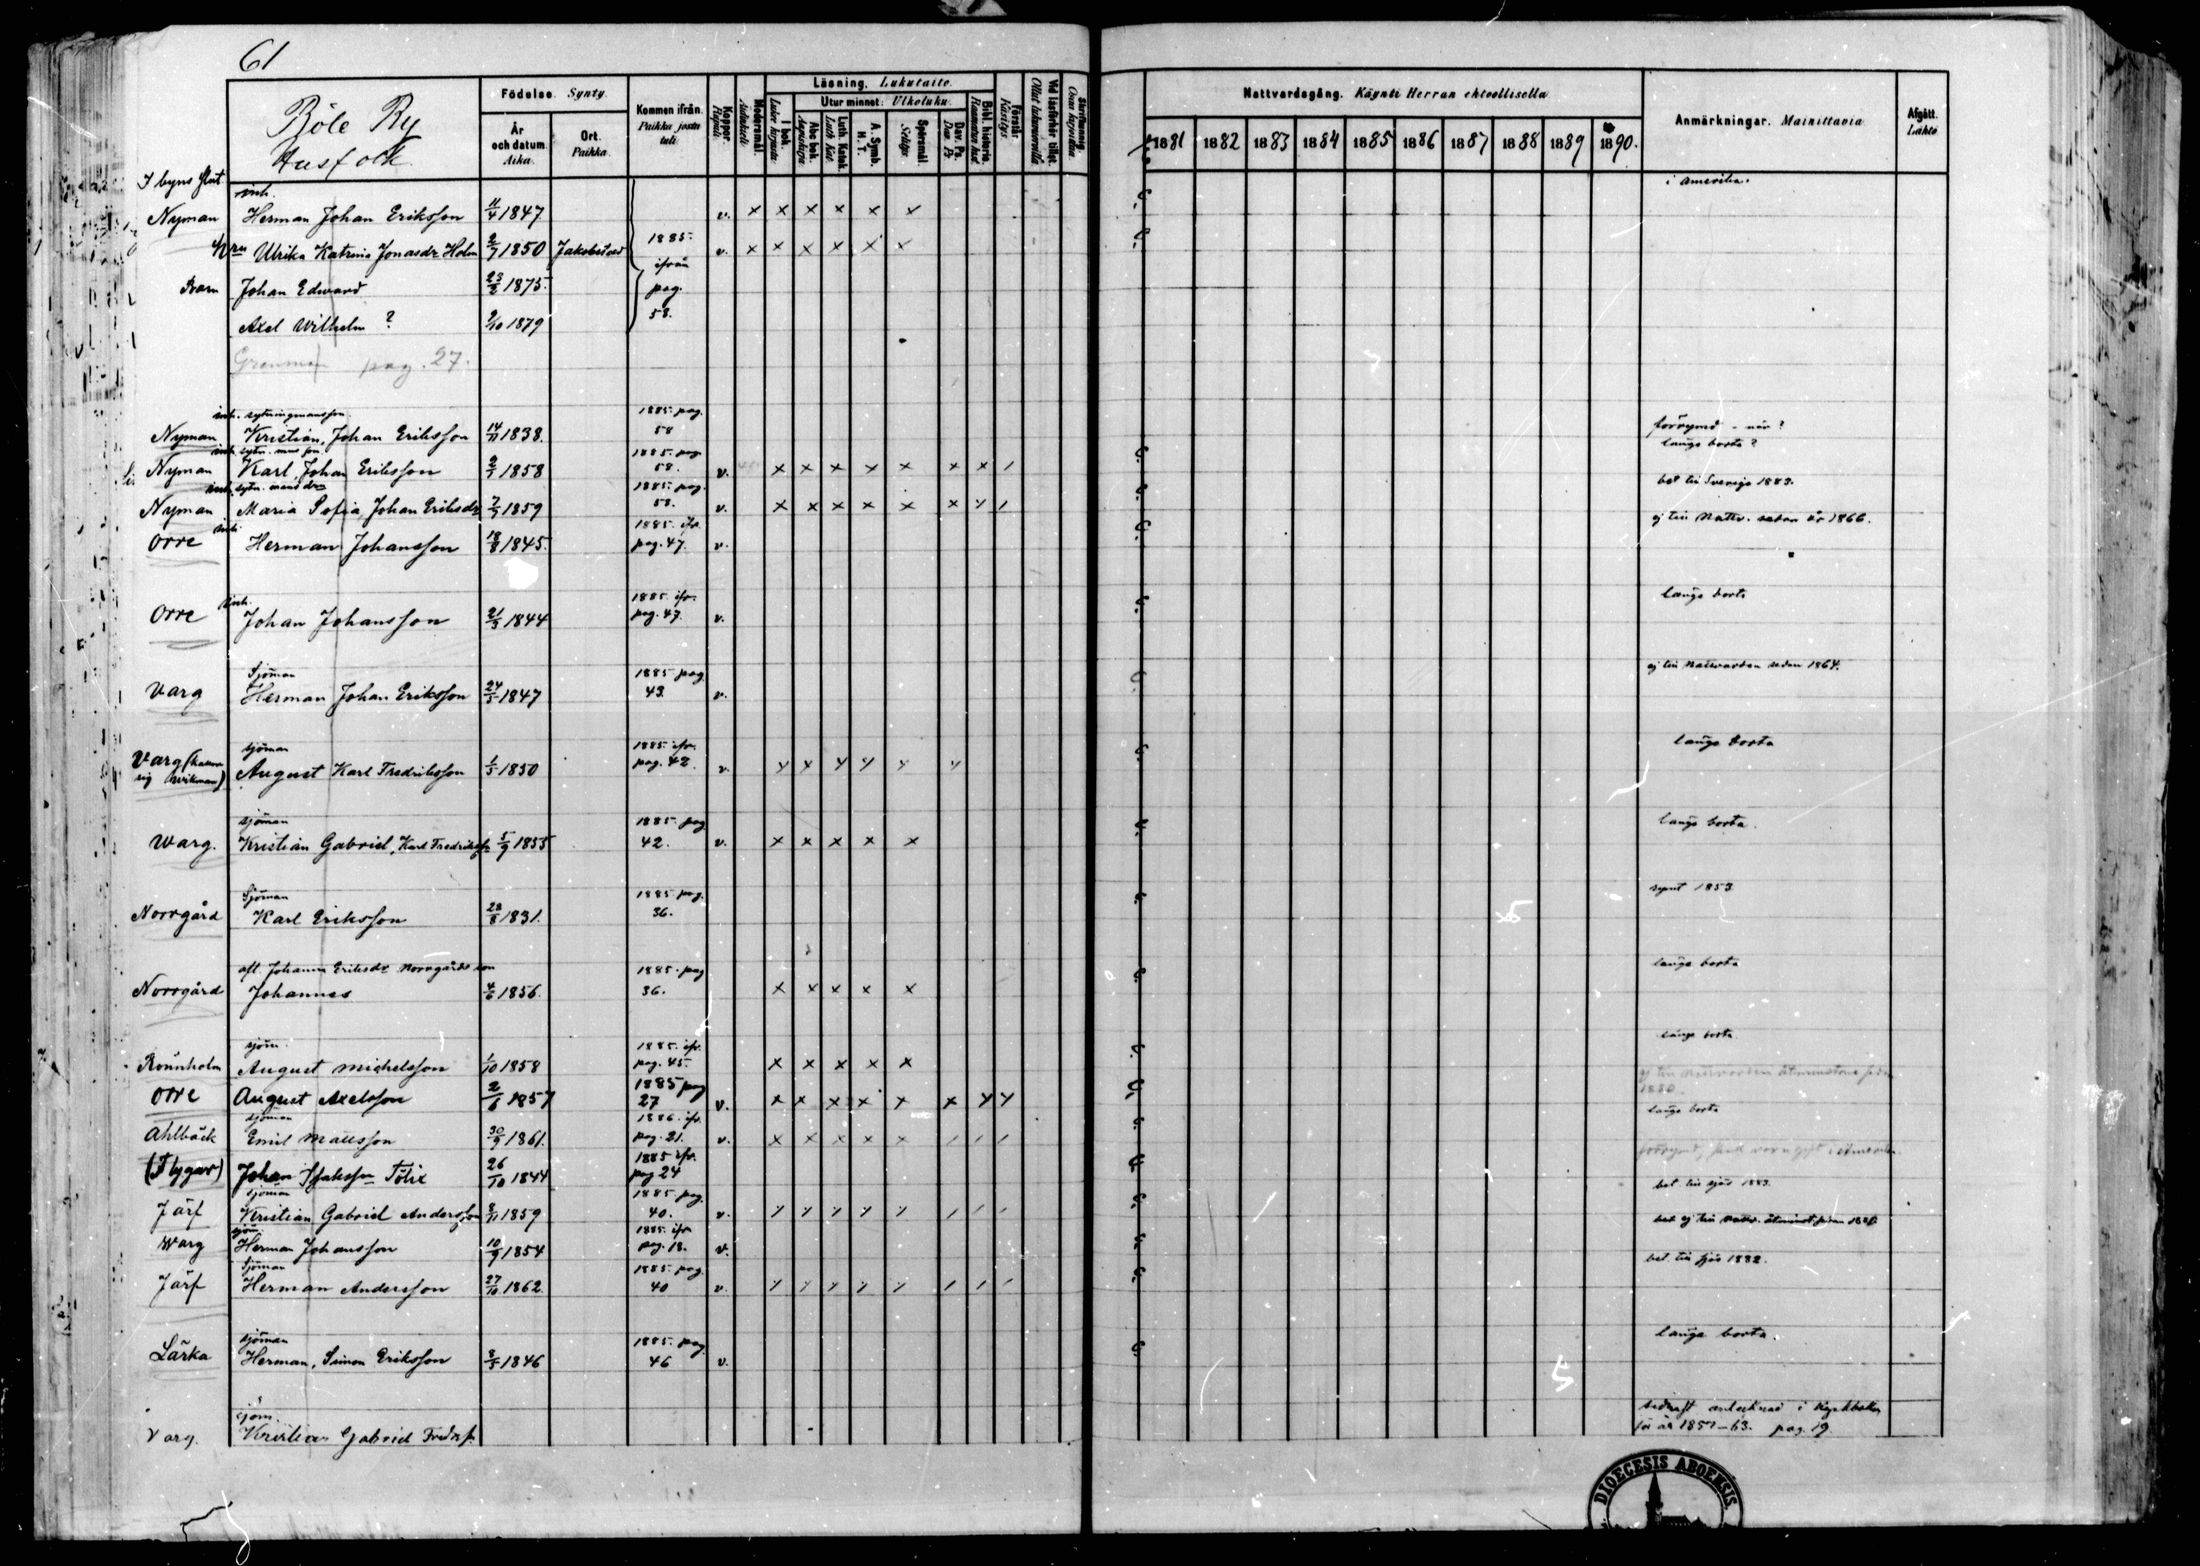 61
Böle By
Husfolk
Födelse. Synty.
År och datum. Aika.
Ort. Paikka.
Kommen ifrån. Paikka josta tuli.
Koppor. Rupuli.
Modersmål. Äidinkieli.
Läsning. Lukutaito.
I bok.
Utur minnet: Ulkoluku.
Abc bok.
Luth. Katek. Luth. Kat.
A. Symb. H. T.
Spörsmål
Dav. Ps. Dav. Ps.
Bibl. historia.
Förstår. Käsitys.
Nattvardsgång. Käynti Herran ehtoollisella
1881 1882 1883 1884 1885 1886 1887 1888 1889 1890.
Anmärkningar. Mainittavia.
Afgått. Lähtö
I byns slut
inh. i Amerika.
Nyman Herman Johan Eriksson 11/4 1847 v. × × × × × ×
Hru Ulrika Katrina Jonasdr Holm 2/7 1850 Jakobstad 1885. ifrån pag. 58. v. × × × × × ×
Barn Johan Edward 23/2 1875.
Axel Wilhelm ? 2/10 1879
pag. 27.
inh. sytningmansson 1885. pag.
Nyman Kristian, Johan Eriksson 14/11 1838. 58 förrymd - när ?
länge borta ?
1885. pag
Nyman Karl, Johan Eriksson 2/1 1858 58. v. × × × × × × × /
1885. pag. bet till Sverige 1883.
Nyman Maria Sofia, Johan Eriksdr 7/7 1859 58. v. × × × × × × × /
inh 1885. ifr. ej till Nattv. sedan år 1866.
Orre Herman Johansson 18/8 1845. pag. 47. v.
inh. 1885. ifr. länge borta
Orre Johan Johansson 21/3 1844 pag. 47. v.
Sjöman 1885 pag. ej till Nattvarden sedan 1864.
Varg Herman Johan Eriksson 24/5 1847 43. v.
sjöman 1885. ifr. länge borta
Varg August Karl Fredriksson 1/5 1850 pag. 42. v.
sjöman 1885. pag länge borta.
Warg. Kristian Gabriel, Karl Fredrikss. 5/9 1855 42. v. × × × × ×
Sjöman 1885 pag. 1853.
Norrgård Karl Eriksson 28/8 1831. 36.
afl. Johanna Eriksdr Norrgårds son 1885. pag länge borta
Norrgård Johannes 4/6 1856. 36. × × × × ×
sjöm. 1885. ifr. länge borta.
Rönnholm August Michelsson 1/10 1858 pag. 45. × × × × ×
1880.
Orre August Axelsson 2/6 1857 1885 pag 27 v.
sjöman 1886. ifr. länge borta
Ahlbäck Emil Mattsson 30/9 1861. pag. 21. v. × × × × × / / /
(Flygar) Johan Isaksson Tölix 26/10 1844 1885 ifr. pag 24
sjöman 1885 pag. bet till sjös 1883.
Järf Kristian Gabriel Andersson 8/11 1859 40. v.
sjöm. 1885. ifr.
Warg Herman Johansson 10/9 1854 pag. 18. v.
Sjöman 1885. pag. bet. till sjös 1882.
Järf Herman Andersson 27/10 1862. 40 v.
sjöman 1885. pag länge borta.
Lärka Herman, Simon Eriksson 3/5 1846 46 v.
sjöm. antecknad i Kyrkboken
Varg. Kristian Gabriel Fredrss. för år 1857-63. pag. 19
DIOECESIS ABOENSIS